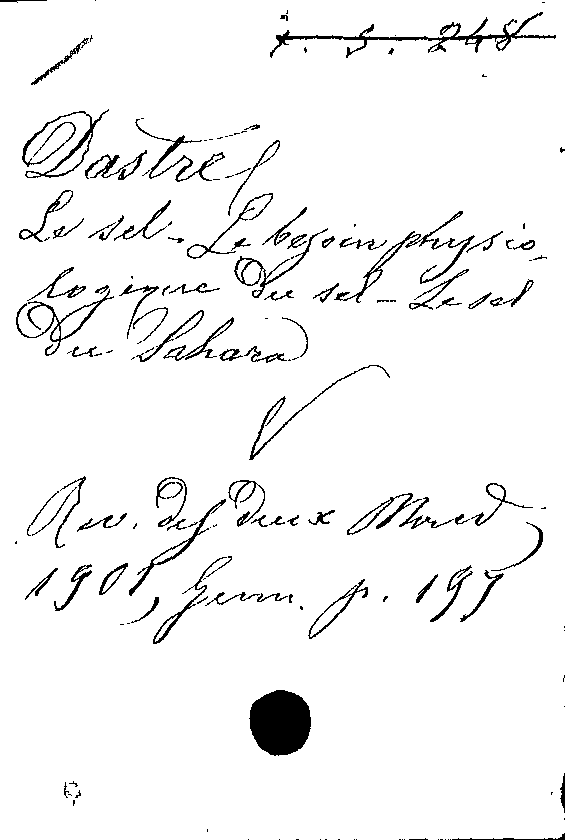 7. S. 248
Dastre
Le sel - Le besoin physio-
logique du sel - Le sel
du Sahara
Rev. des deux Mond,
1901, p. 197